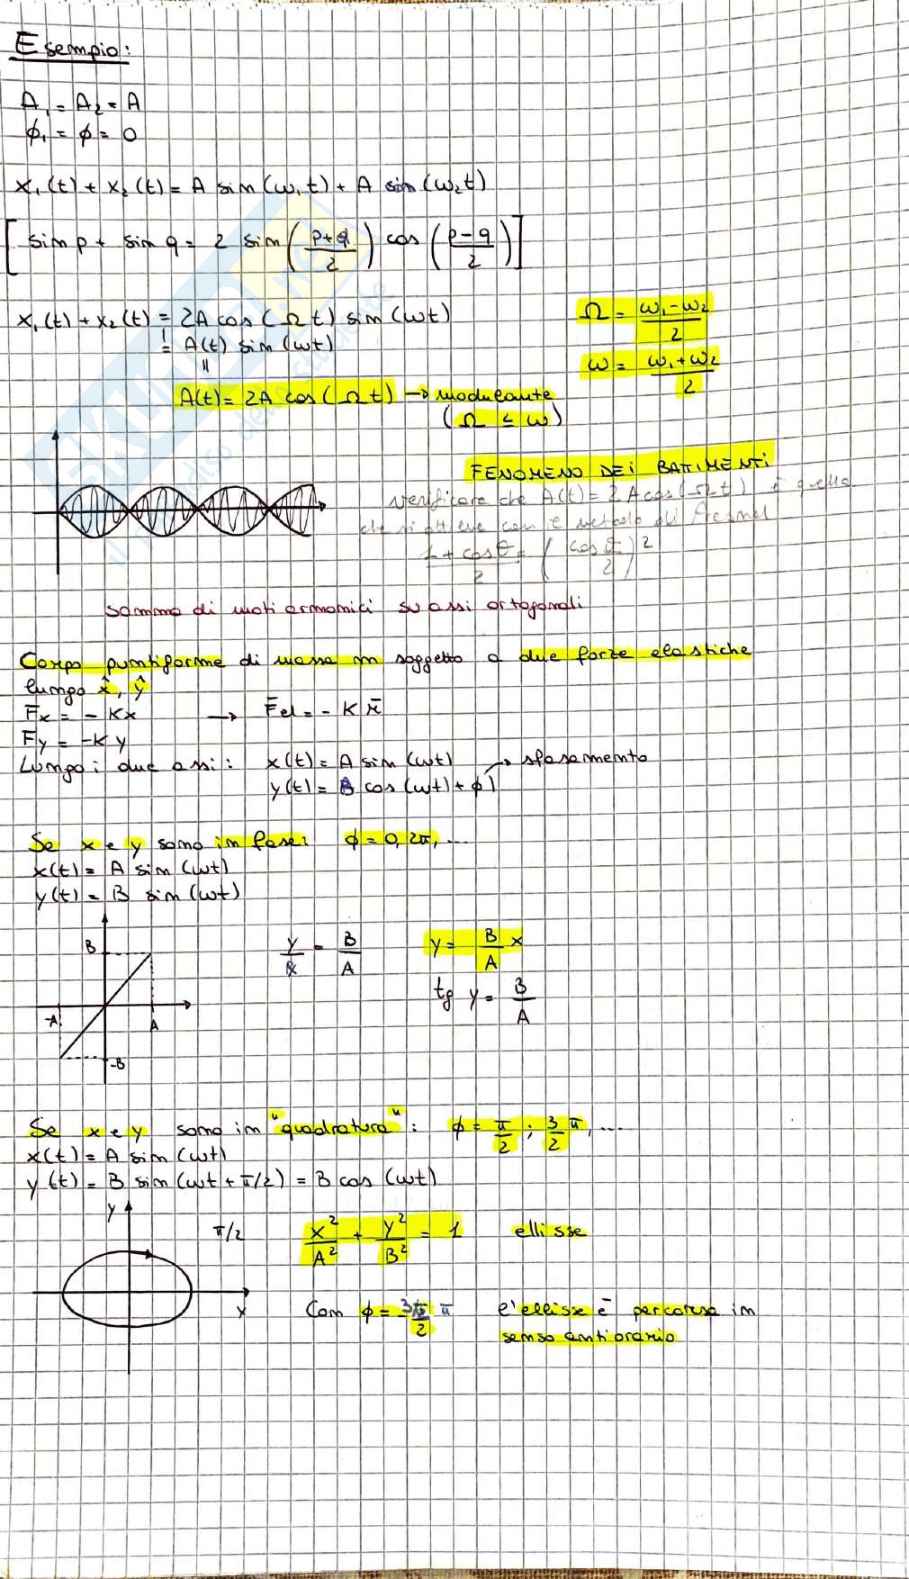 Esempio:
A₁ = A₂ = A
ϕ₁ = ϕ = 0
x₁(t) + x₂(t) = A sin(ω₁t) + A sin(ω₂t)
[sin p + sin q = 2 sin((p+q)/2) cos((p-q)/2)]
x₁(t) + x₂(t) = 2A cos(Ωt) sin(ωt)
Ω = (ω₁-ω₂)/2
= A(t) sin(ωt)
ω = (ω₁+ω₂)/2
A(t) = 2A cos(Ωt) → modulante
(Ω ≤ ω)
FENOMENO DEI BATTIMENTI
verificare che A(t) = 2A cos(Ωt) è quella
che si ottiene con il metodo di Fresnel
somma di moti armonici su assi ortogonali
Corpo puntiforme di massa m soggetto a due forze elastiche
lungo x̂, ŷ
Fx = - Kx → F̄el = - K r̄
Fy = -K y
Lungo i due assi: x(t) = A sin(ωt) → sfasamento
y(t) = B cos(ωt) + ϕ)
Se x e y sono in fase: ϕ = 0, 2π, ...
x(t) = A sin(ωt)
y(t) = B sin(ωt)
B
y/x = B/A y = B/A x
tg y = B/A
-A A
-B
Se x e y sono in "quadratura": ϕ = π/2 ; 3/2 π, ...
x(t) = A sin(ωt)
y(t) = B sin(ωt + π/2) = B cos(ωt)
y π/2 x²/A² + y²/B² = 1 ellisse
x
Con ϕ = 3/2 π l'ellisse è percorsa in
senso antiorario